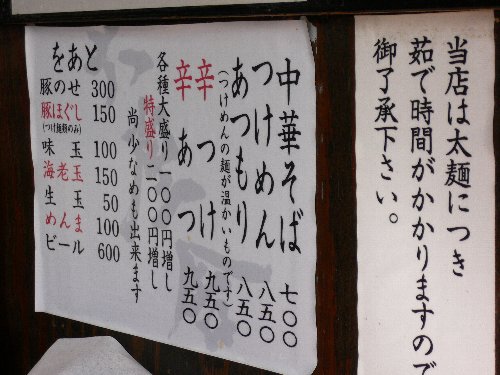 当店は太麺につき
茹で時間がかかりますので
御了承下さい。
中華そば 七〇〇
つけめん 八五〇
あつもり 八五〇
(つけめんの麺が温かいものです)
辛つけ 九五〇
辛あつ 九五〇
各種大盛り 一〇〇円増し
特盛り 二〇〇円増し
尚少なめも出来ます
をあと
豚のせ 300
豚ほぐし 150
(つけ麺類のみ)
味玉 100
海老玉 150
生玉 50
めんま 100
ビール 600